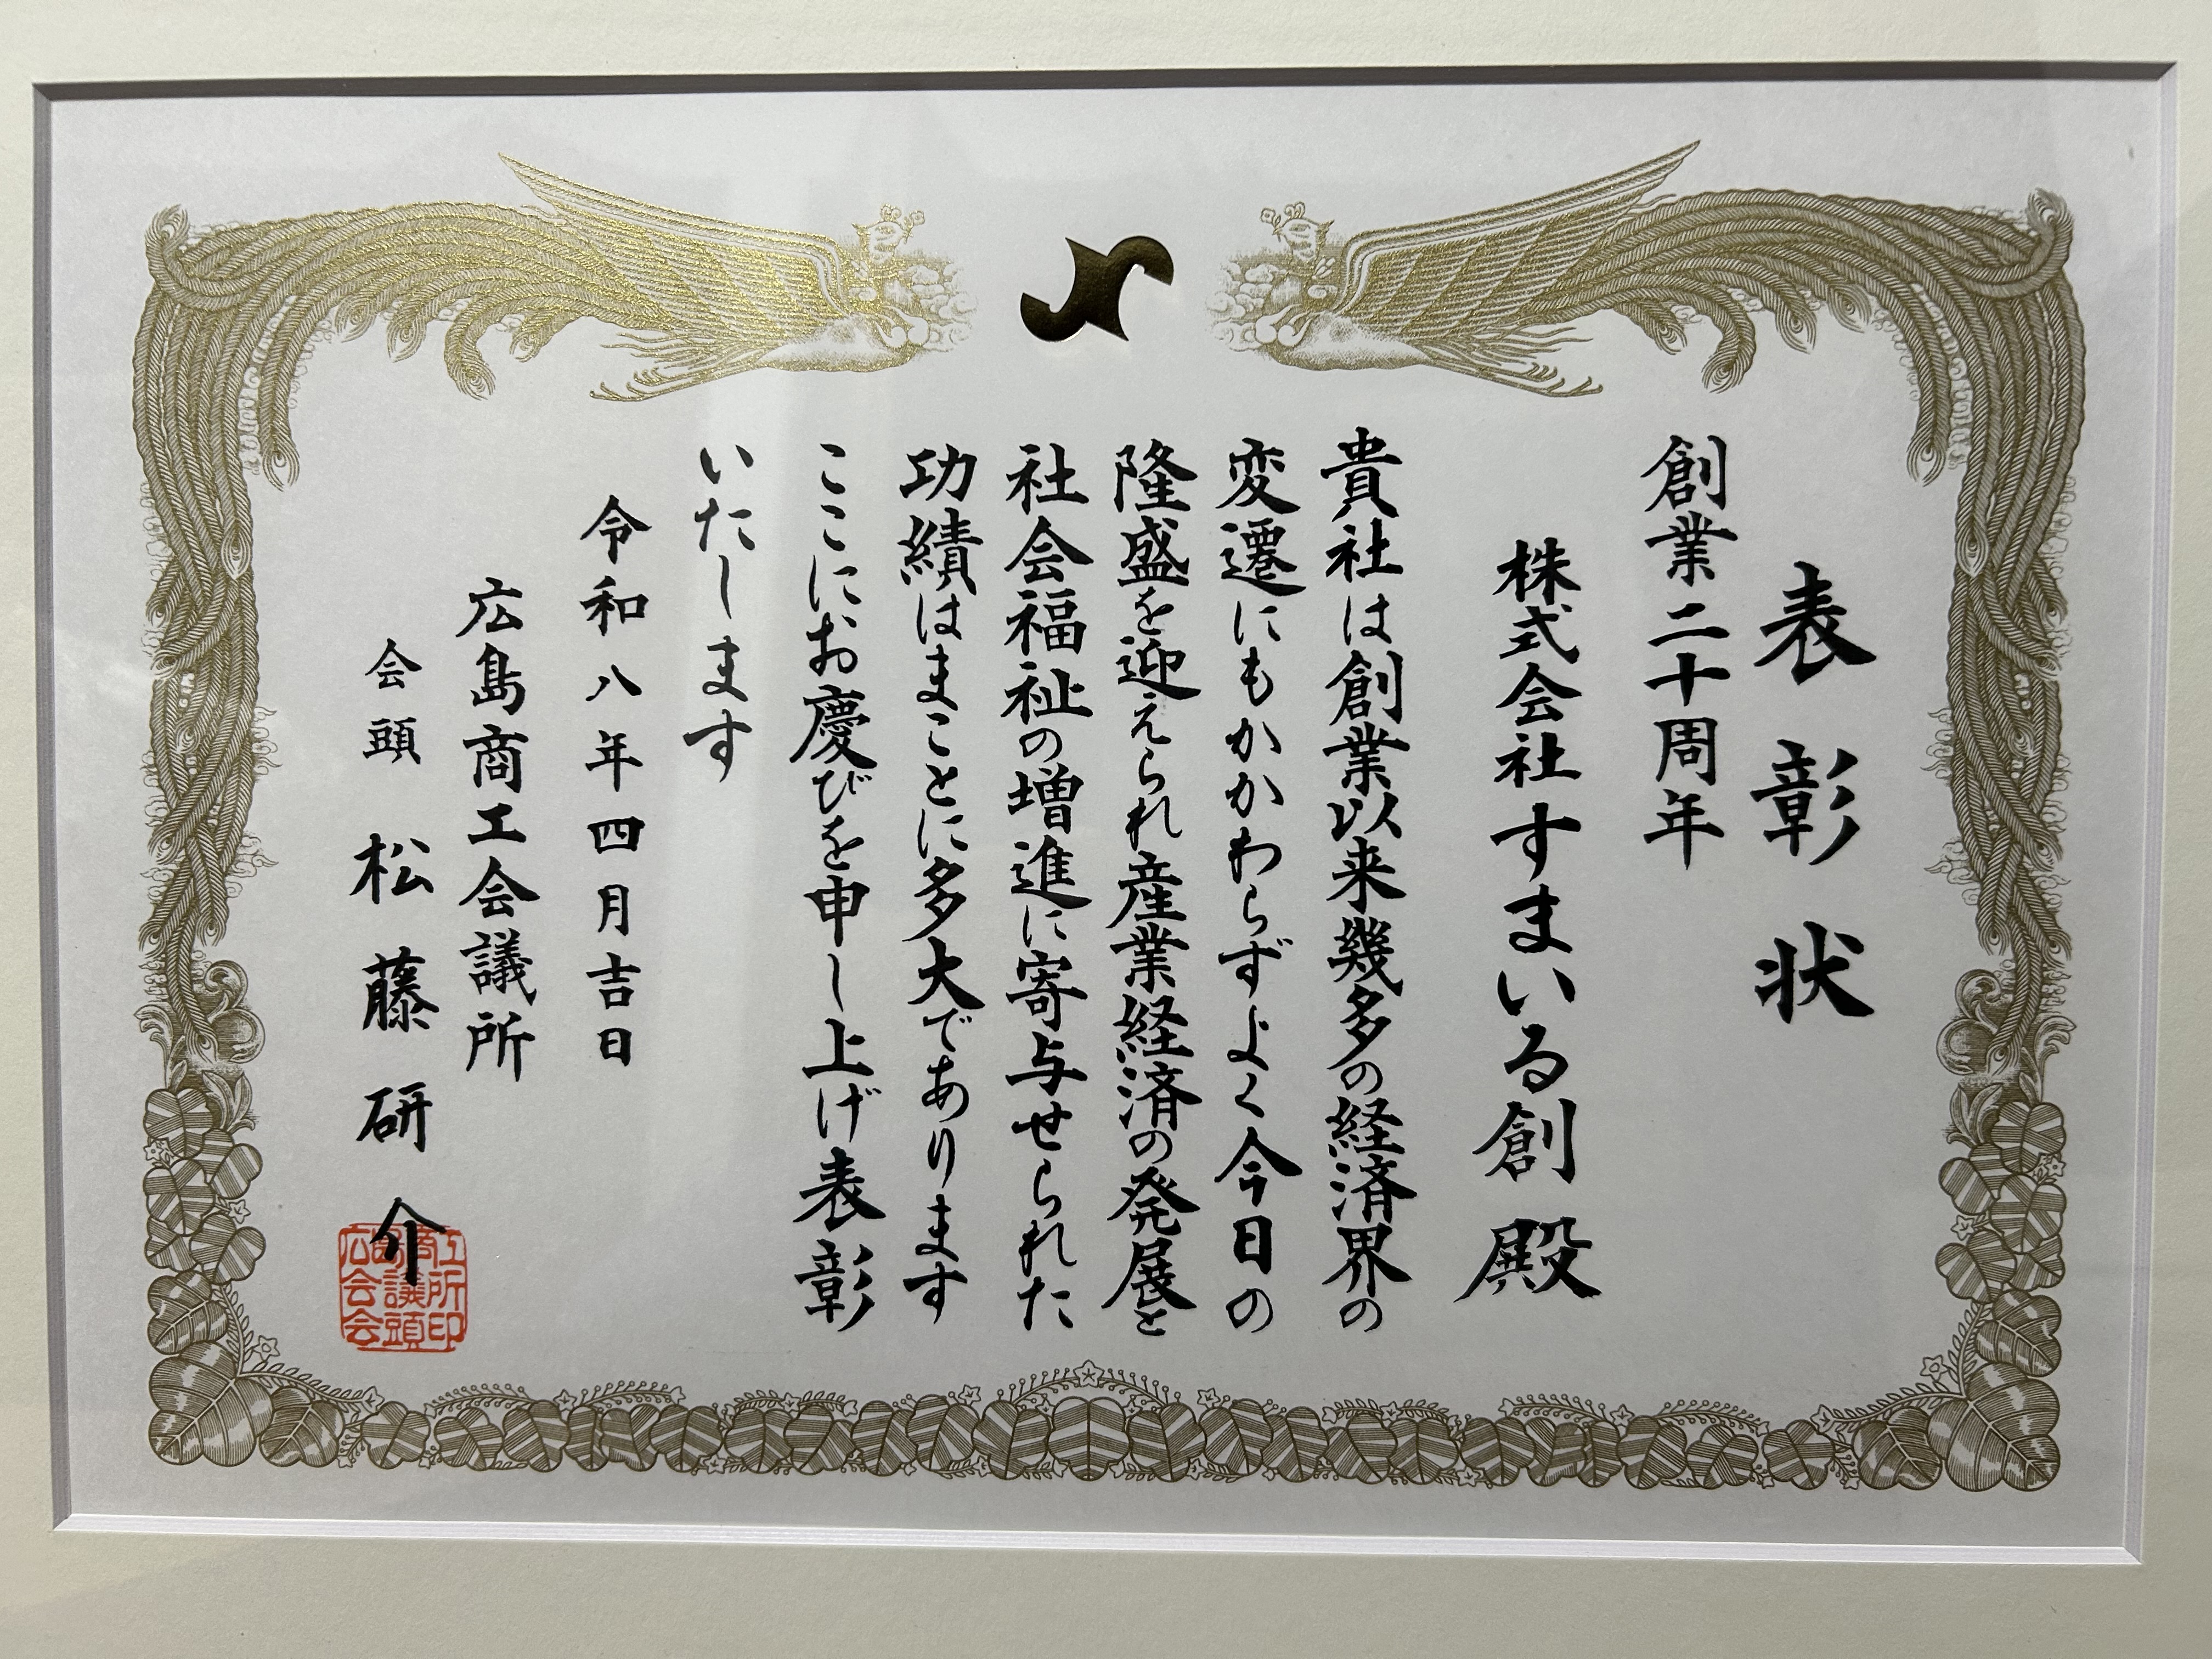 表彰状
創業二十周年
株式会社すまいる創 殿
貴社は創業以来幾多の経済界の
変遷にもかかわらずよく今日の
隆盛を迎えられ産業経済の発展と
社会福祉の増進に寄与せられた
功績はまことに多大であります
ここにお慶びを申し上げ表彰
いたします
令和八年四月吉日
広島商工会議所
会頭 松藤研介
広島商工
会議所
会頭印